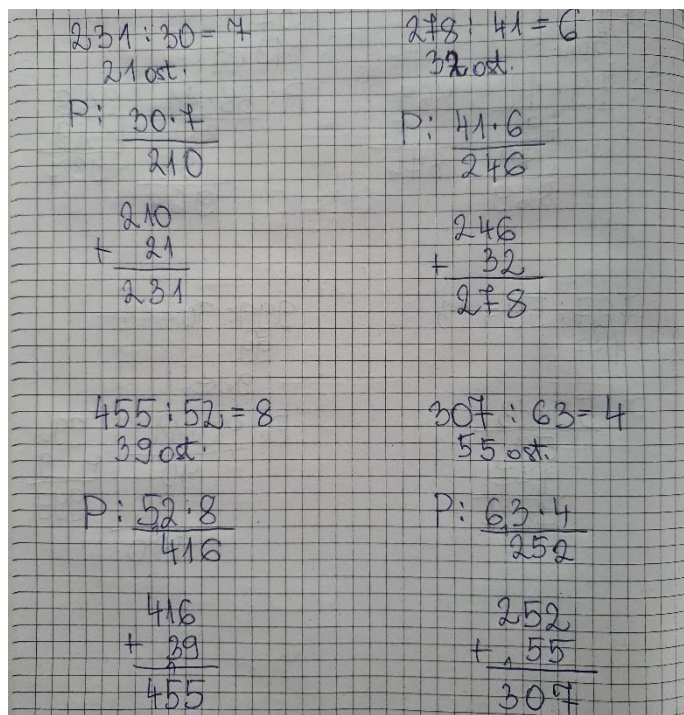 231 : 30 = 7
21 ost.
P: 30·7
210
210
+ 21
231
278 : 41 = 6
32 ost.
P: 41·6
246
246
+ 32
278
455 : 52 = 8
39 ost.
P: 52·8
416
416
+ 39
455
307 : 63 = 4
55 ost.
P: 63·4
252
252
+ 55
307